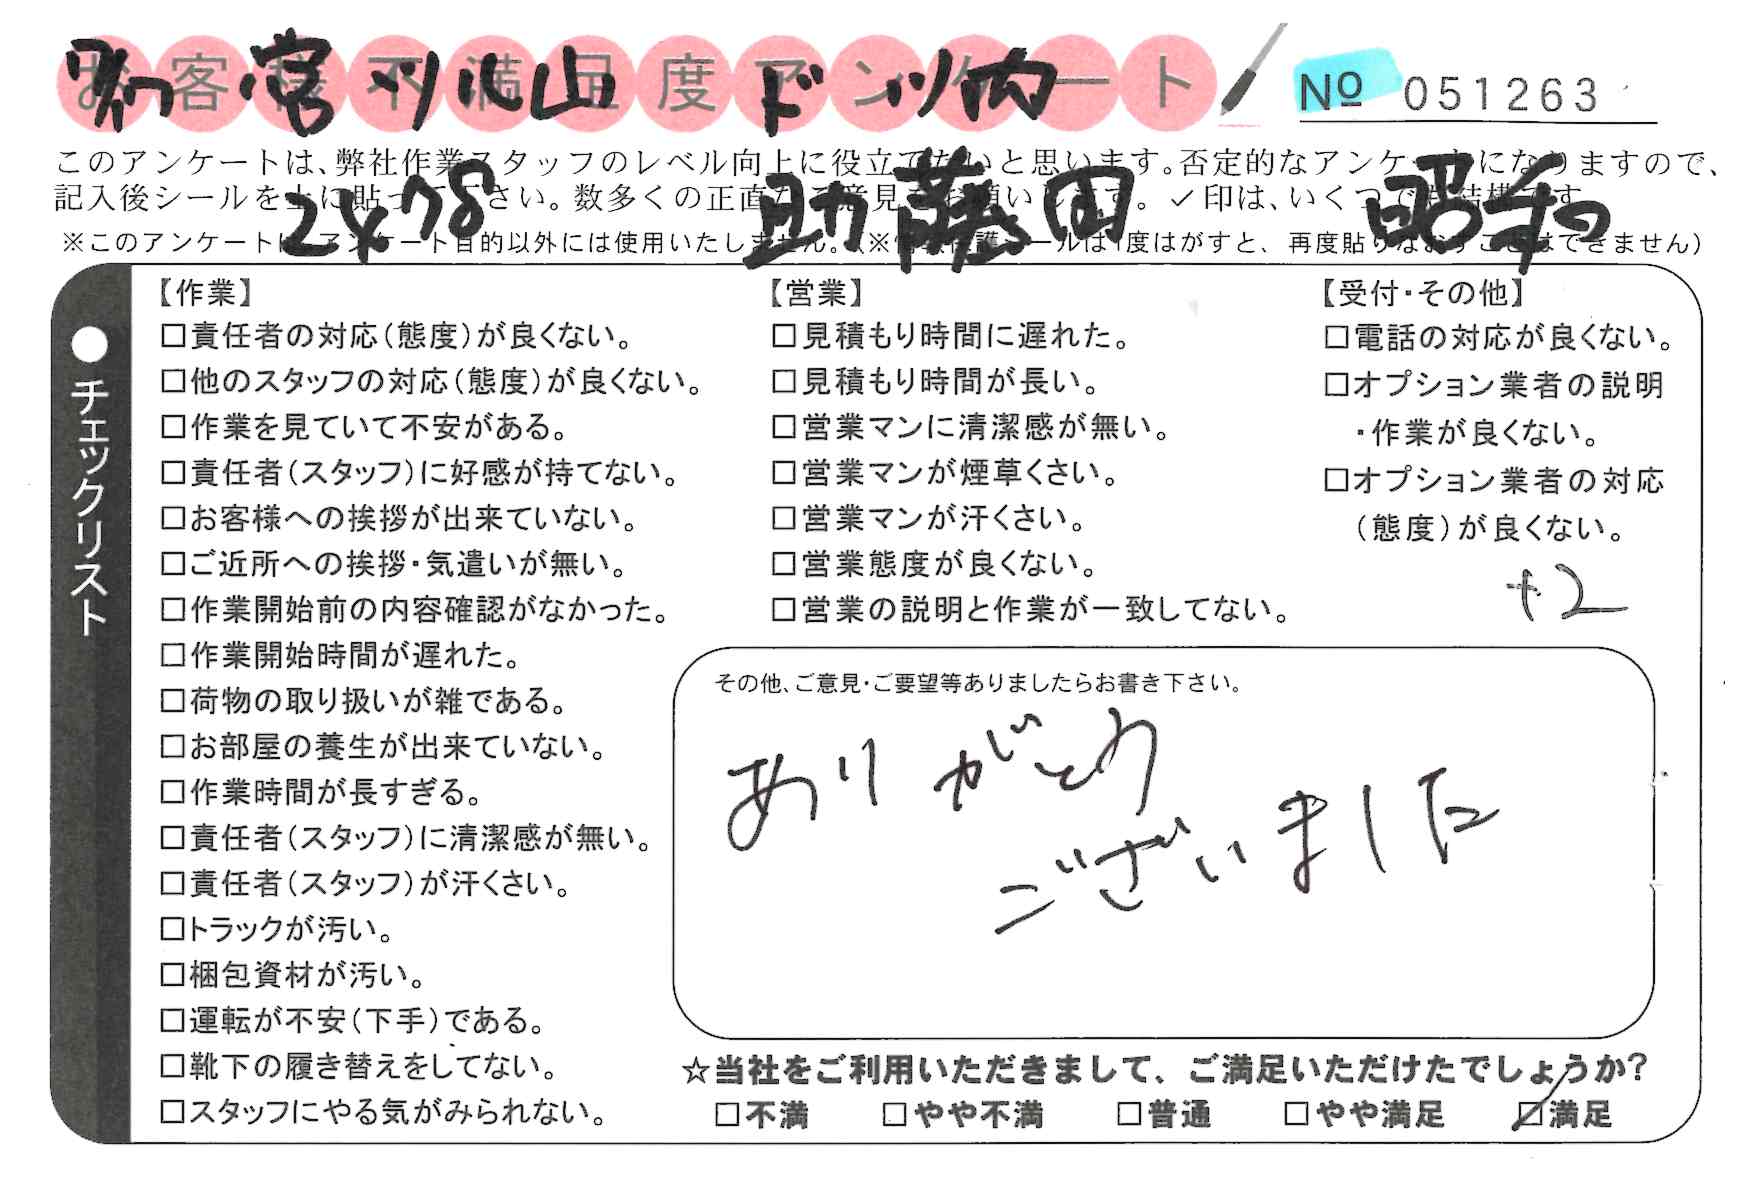 お客様不満足度アンケート
No 051263
営 小山 ド 肉
このアンケートは、弊社作業スタッフのレベル向上に役立てたいと思います。否定的なアンケートになりますので、
記入後シールを上に貼って下さい。数多くの正直なご意見をお願いします。✓印は、いくつでも結構です
2478 助 藤田 昭和
※このアンケートは、アンケート目的以外には使用いたしません。(※個人保護シールは1度はがすと、再度貼りなおすことはできません)
●チェックリスト
【作業】
□責任者の対応(態度)が良くない。
□他のスタッフの対応(態度)が良くない。
□作業を見ていて不安がある。
□責任者(スタッフ)に好感が持てない。
□お客様への挨拶が出来ていない。
□ご近所への挨拶・気遣いが無い。
□作業開始前の内容確認がなかった。
□作業開始時間が遅れた。
□荷物の取り扱いが雑である。
□お部屋の養生が出来ていない。
□作業時間が長すぎる。
□責任者(スタッフ)に清潔感が無い。
□責任者(スタッフ)が汗くさい。
□トラックが汚い。
□梱包資材が汚い。
□運転が不安(下手)である。
□靴下の履き替えをしてない。
□スタッフにやる気がみられない。
【営業】
□見積もり時間に遅れた。
□見積もり時間が長い。
□営業マンに清潔感が無い。
□営業マンが煙草くさい。
□営業マンが汗くさい。
□営業態度が良くない。
□営業の説明と作業が一致してない。
【受付・その他】
□電話の対応が良くない。
□オプション業者の説明
・作業が良くない。
□オプション業者の対応
(態度)が良くない。
+2
その他、ご意見・ご要望等ありましたらお書き下さい。
ありがとう
ございました
☆当社をご利用いただきまして、ご満足いただけたでしょうか?
□不満 □やや不満 □普通 □やや満足 ☑満足